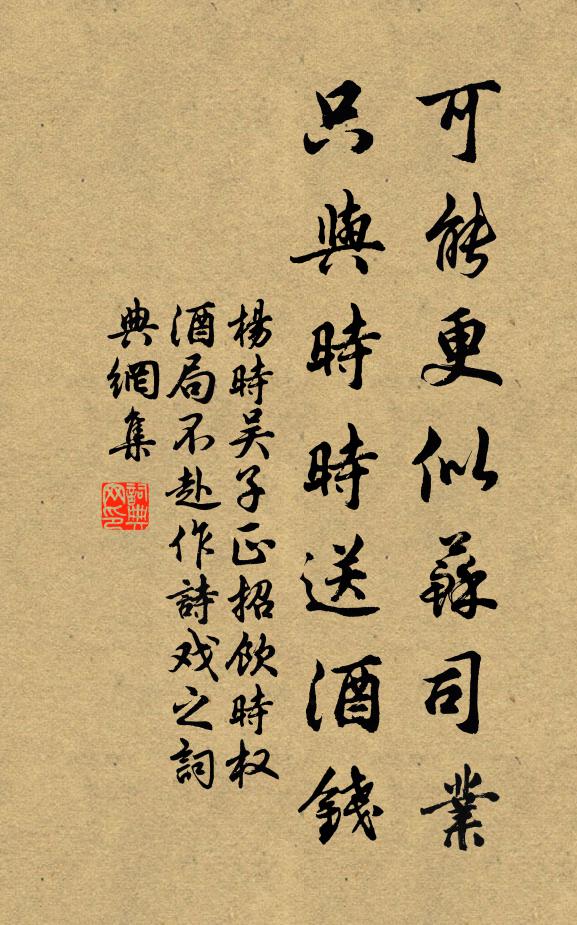 可能更似蘇司業
只與時時送酒錢
楊時吴子正招飲時权
酒局不赴作詩戏之詞
典網集
詞典
网印